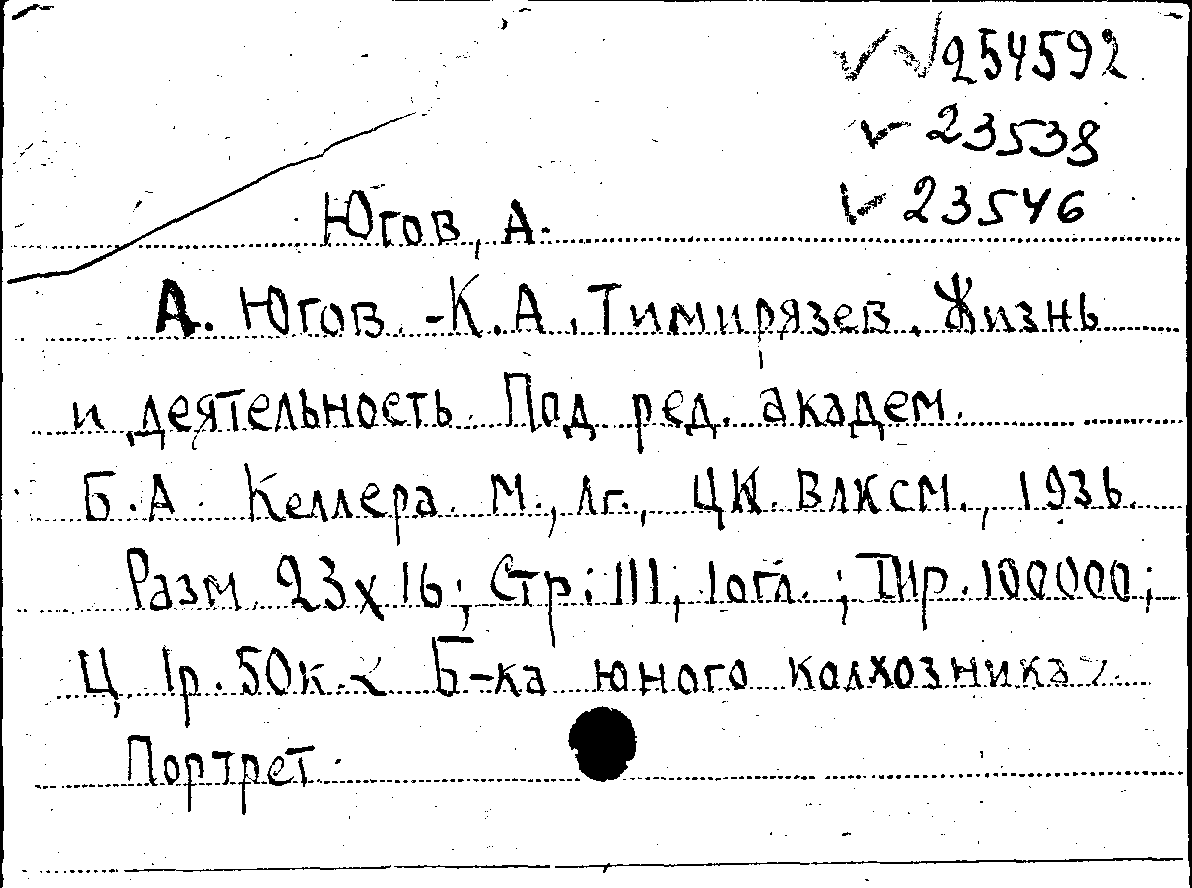 ✓ √ 254592
✓ 23538
✓ 23546
Югов, А.
А. Югов. - К. А. Тимирязев. Жизнь
и деятельность. Под ред. академ.
Б. А. Келлера. М., Лг., ЦК. ВЛКСМ., 1936.
Разм. 23х16; Стр: 111, 1 огл.; Тир. 100000;
Ц. 1р. 50к. < Б-ка юного колхозника >.
Портрет.